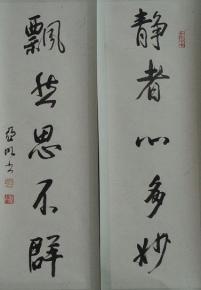 静者心多妙
飘然思不群